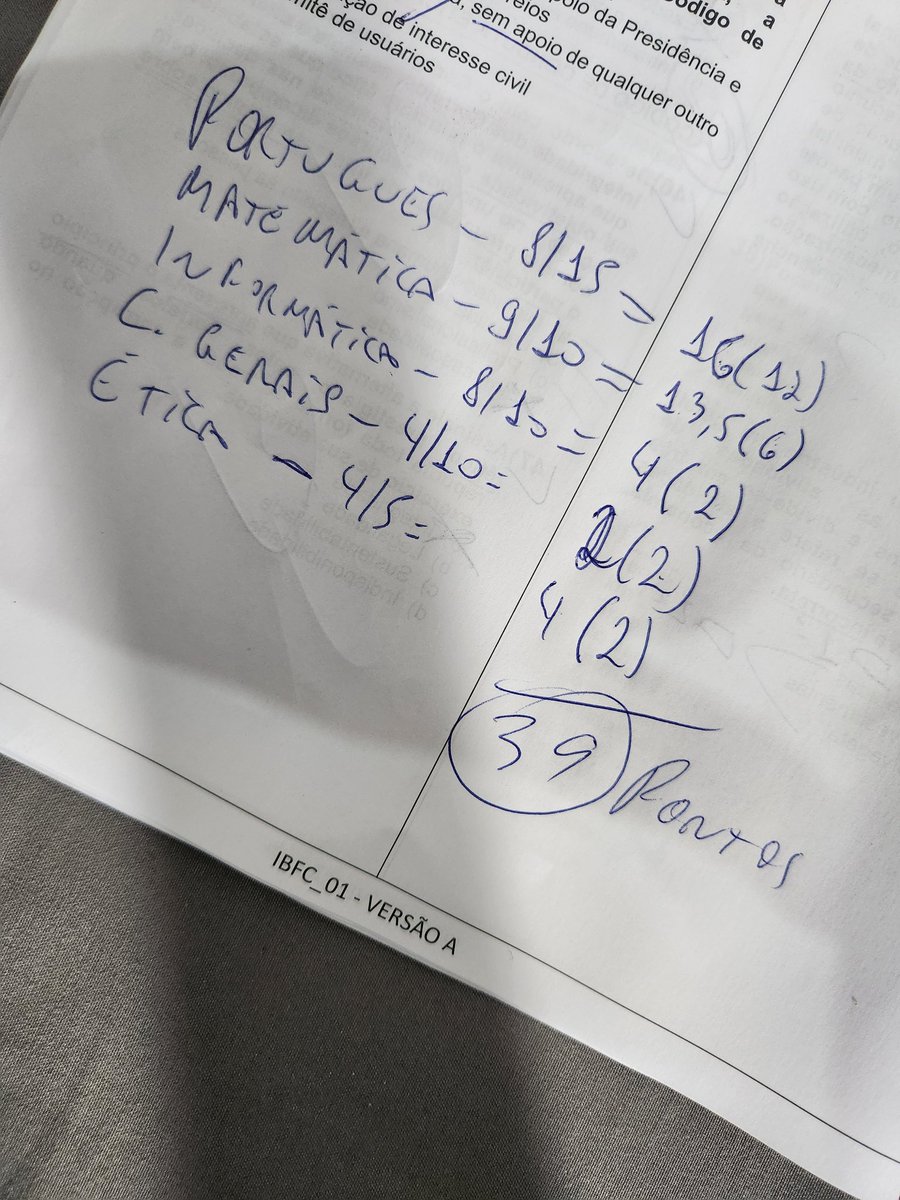 a
Código de
poio da Presidência e
reios
sem apoio de qualquer outro
ção de interesse civil
mitê de usuários
PORTUGUES - 8/15 = 16(12)
MATEMÁTICA - 9/10 = 13,5(6)
INFORMÁTICA - 8/10 = 4(2)
C. GERAIS - 4/10 = 2(2)
ÉTICA - 4/5 = 4(2)
39 PONTOS
IBFC_01 - VERSÃO A